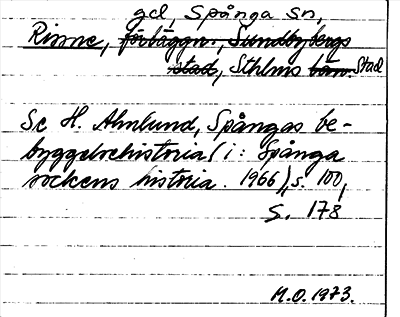 gd, Spånga sn,
Rinne, förläggn., Sundbybergs
stad, Sthlms län. Stad
Se H. Ahnlund, Spångas be-
byggelsehistoria (i: Spånga
sockens historia. 1966), s. 100,
s. 178
M.O. 1973.